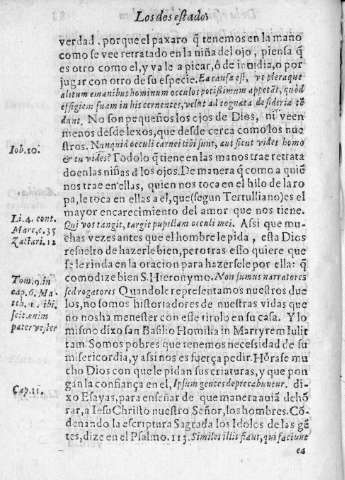 Los dos estados
verdad, porque el paxaro q̃ tenemos en la mano
como se vee retratado en la niña del ojo, piensa q̃
es otro como el, y vale a picar, ô de inuidia, o por
jugar con otro de su especie. Ea causa est, vt pleraque
alitum è manibus hominum oculos potissimum appetãt, quòd
effigiem suam in his cernentes, velut ad cognata desideria tẽ
dunt. No son pequeños los ojos de Dios, ni veen
menos desde lexos, que desde cerca como los nue
Iob. 10.
stros. Nunquid oculi carnei tibi sunt, aut sicut videt homo
& tu vides? Todo lo q̃ tiene en las manos trae retrata
do en las niñas d̃ los ojos. De manera q̃ como a quiẽ
nos trae en ellas, quien nos toca en el hilo de la ro
pa, le toca en ellas a el, que (segun Tertulliano) es el
Li. 4. cont.
Marc. c. 35
Zachari. 12
mayor encarecimiento del amor que nos tiene.
Qui vos tangit, tangit pupillam oculi mei. Assi que mu-
chas vezes antes que el hombre le pida, està Dios
resuelto de hazerle bien, pero tras esso quiere que
se le rinda en la oracion para hazersele por ella: q̃
como dize bien S. Hieronymo. Non sumus narratores
Tom. 9. in
cap. 6. Ma-
tth.
ibi,
scit enim
pater vester
sed rogatores Quando le representamos nuestros due
los, no somos historiadores de nuestras vidas que
no nos ha menester con este titulo en su casa. Y lo
mismo dixo san Basilio Homilia in Martyrem Iulit
tam. Somos pobres que tenemos necessidad de su
misericordia, y assi nos es fuerça pedir. Hõrase mu
cho Dios con que le pidan sus criaturas, y que pon-
Cap. 11.
gan la confiança en el, Ipsum gentes deprecabuntur. di-
xo Esayas, para enseñar de que manera auiã de hõ
rar, a Iesu Christo nuestro Señor, los hombres. Cõ-
denando la escriptura Sagrada los Idolos de las gẽ
tes, dize en el Psalmo. 113. Similes illis fiant, qui faciunt
ea